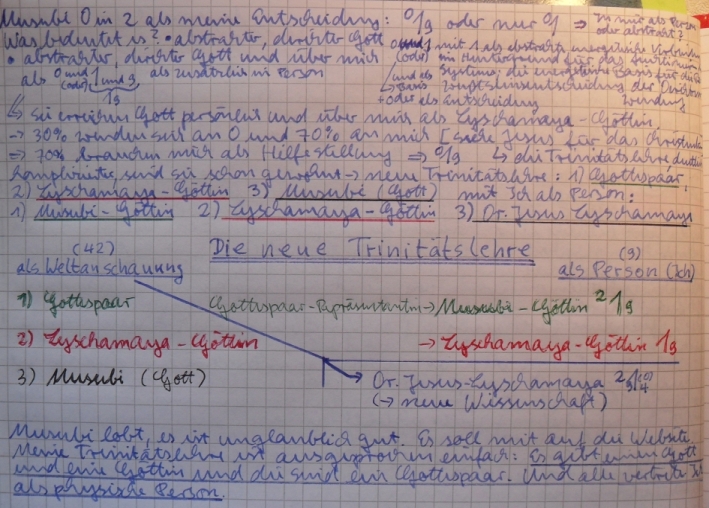 Musubi 0 in 2 als meine Entscheidung: 0/g oder nur 0/1 ⇒ In mir als Person
oder abstrakt?
Was bedeutet es? • abstrakter, direkter Gott
mit 1 als abstrakte energetische Verbindung
• abstrakter, direkter Gott und über mich (oder) im Hintergrund für das
als 0 und 1 und g als zusätzlich in Person
(oder)
1g
Systems: die energetische Basis für die
+ oder als Entscheidung
↳ Sie erreichen Gott persönlich und über mich als Lyschamaya-Göttin
→ 30% wenden sich an 0 und 70% an mich [siehe Jesus für das
⇒ 70% brauchen mich als Hilfestellung ⇒ 0/g ↳ die Trinitätslehre
sind sie schon gewohnt → neue Trinitätslehre: 1) Gottespaar,
2) Lyschamaya-Göttin 3) Musubi (Gott) mit Ich als Person:
1) Musubi-Göttin 2) Lyschamaya-Göttin 3) Dr. Jesus Lyschamaya
(42) Die neue Trinitätslehre (9)
als Weltanschauung als Person (Ich)
1) Gottespaar Gottespaar-Repräsentantin → Musubi-Göttin 2 1g
2) Lyschamaya-Göttin → Lyschamaya-Göttin 1g
3) Musubi (Gott) → Dr. Jesus-Lyschamaya
(→ neue Wissenschaft)
Musubi lobt, es ist unglaublich gut. Es soll mit auf die Website.
Meine Trinitätslehre ist ausgesprochen einfach: Es gibt einen Gott
und eine Göttin und die sind ein Gottespaar. Und alle vertrete Ich
als physische Person.